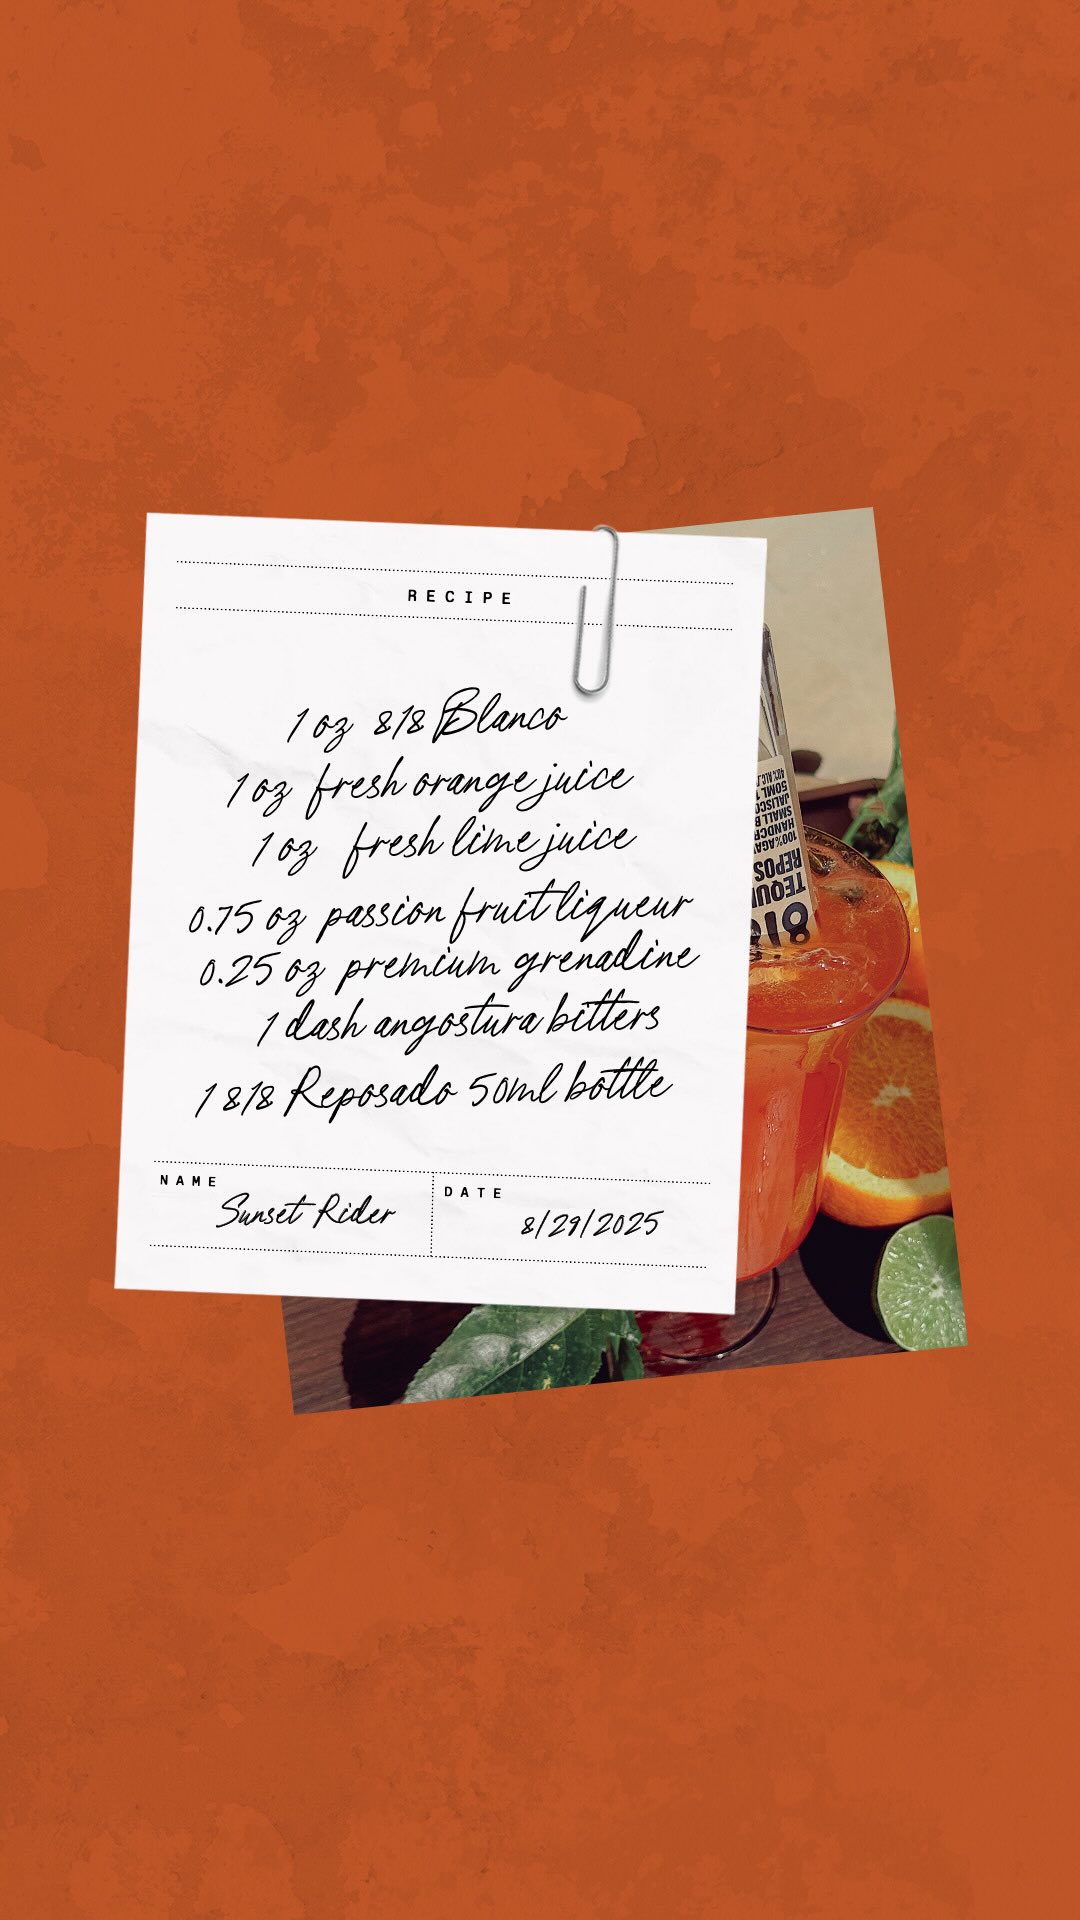 RECIPE
1 oz 818 Blanco
1 oz fresh orange juice
1 oz fresh lime juice
0.75 oz passion fruit liqueur
0.25 oz premium grenadine
1 dash angostura bitters
1 818 Reposado 50ml bottle
NAME
Sunset Rider
DATE
8/29/2025
40% ALC.
50ML
JALISCO
SMALL B
HANDCR
100% AGA
REPOS
TEQU
818